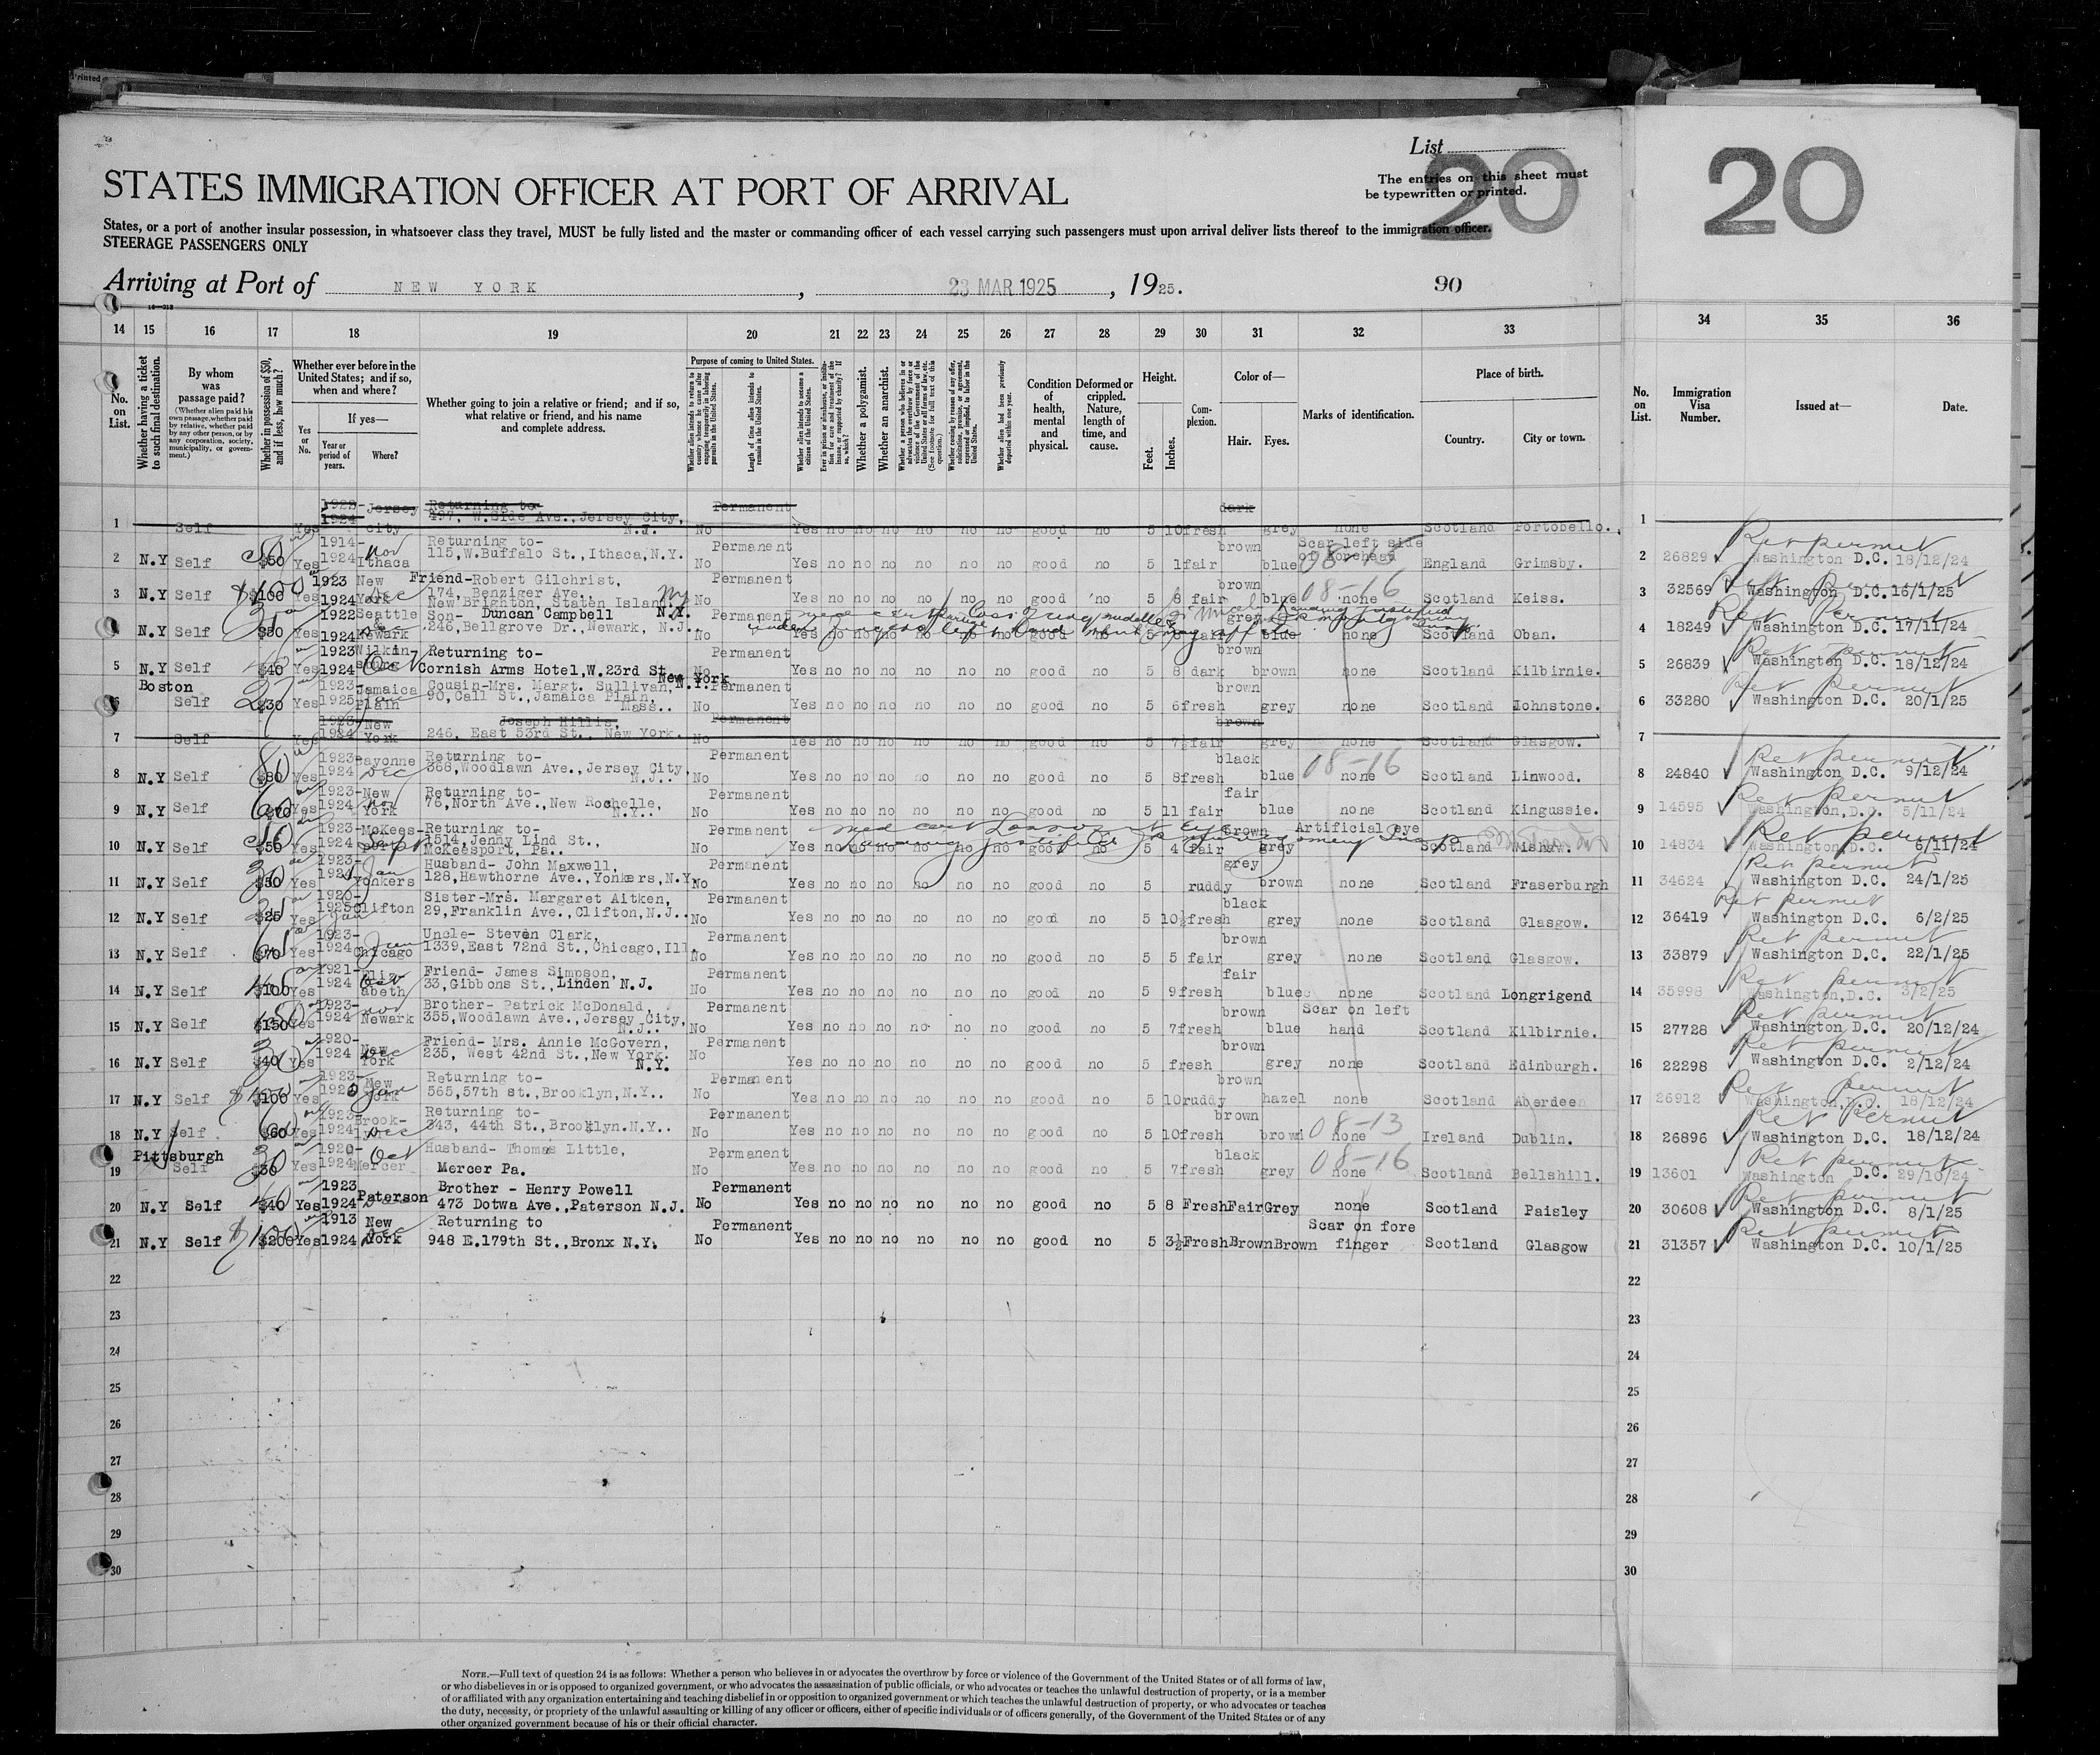 Printed
List
20
20
The entries on this sheet must
be typewritten or printed.
STATES IMMIGRATION OFFICER AT PORT OF ARRIVAL
States, or a port of another insular possession, in whatsoever class they travel, MUST be fully listed and the master or commanding officer of each vessel carrying such passengers must upon arrival deliver lists thereof to the immigration officer.
STEERAGE PASSENGERS ONLY
Arriving at Port of NEW YORK, 23 MAR 1925, 1925.
90
14 15 16 17 18 19 20 21 22 23 24 25 26 27 28 29 30 31 32 33 34 35 36
No. on List.
Whether having a ticket to such final destination.
By whom was passage paid?
(Whether alien paid his own passage, whether paid by relative, whether paid by any other person, or by any corporation, society, municipality, or government.)
Whether in possession of $50, and if less, how much?
Whether ever before in the United States; and if so, when and where?
Yes or No.
If yes—
Year or period of years.
Where?
Whether going to join a relative or friend; and if so, what relative or friend, and his name and complete address.
Purpose of coming to United States.
Whether alien intends to return to country whence he came after engaging temporarily in laboring pursuits in the United States.
Length of time alien intends to remain in the United States.
Whether alien intends to become a citizen of the United States.
Ever in prison or almshouse, or institution for care and treatment of the insane or supported by charity? If so, which?
Whether a polygamist.
Whether an anarchist.
Whether a person who believes in or advocates the overthrow by force or violence of the Government of the United States or all forms of law, etc. (See footnote for full text of this question.)
Whether coming by reason of any offer, solicitation, promise, or agreement, expressed or implied, to labor in the United States.
Whether alien had been previously deported within one year.
Condition of health, mental and physical.
Deformed or crippled. Nature, length of time, and cause.
Height.
Feet. Inches.
Complexion.
Color of—
Hair. Eyes.
Marks of identification.
Place of birth.
Country. City or town.
No. on List.
Immigration Visa Number.
Issued at—
Date.
1 Self Yes 1923- 1924 Jersey City Returning to- 497, W.Side Ave., Jersey City, N.J. No Permanent Yes no no no no no no good no 5 10 fresh dark grey none Scotland Portobello. 1
2 N.Y Self $50 Yes 1914- 1924 Nov Ithaca Returning to- 115,W.Buffalo St., Ithaca,N.Y. No Permanent Yes no no no no no no good no 5 1 fair brown blue Scar left side of forehead England Grimsby. 2 26829 Ret permit Washington D.C. 18/12/24
3 N.Y Self $100 Yes 1923 1924 New York Dec Friend-Robert Gilchrist, 174, Benziger Ave., New Brighton, Staten Island. N.Y. No Permanent Yes no no no no no no good no 5 8 fair brown blue 08-16 none Scotland Keiss. 3 32569 Ret permit Washington D.C. 16/1/25
4 N.Y Self $50 Yes 1922 1924 Seattle Newark Son- Duncan Campbell 246,Bellgrove Dr., Newark, N.J.. No Permanent Yes no good no 5 fair grey blue none Scotland Oban. 4 18249 Ret Permit Washington D.C. 17/11/24
5 N.Y Self $40 Yes 1923 1924 Wilkinsburg Oct Returning to- Cornish Arms Hotel,W. 23rd St, New York N.Y. No Permanent Yes no no no no no no good no 5 8 dark brown brown none Scotland Kilbirnie. 5 26839 Ret permit Washington D.C. 18/12/24
6 Boston Self $30 Yes 1923- 1925 Jamaica Plain Cousin-Mrs. Margt. Sullivan, 90, Call St., Jamaica Plain, Mass.. No Permanent Yes no no no no no no good no 5 6 fresh brown grey none Scotland Johnstone. 6 33280 Ret permit Washington D.C. 20/1/25
7 Self Yes 1923- 1924 New York Joseph Hillis, 246, East 53rd St., New York. No Permanent Yes no no no no no no good no 5 7½ fair brown grey none Scotland Glasgow. 7
8 N.Y Self $80 Yes 1923- 1924 Bayonne Dec Returning to- 368,Woodlawn Ave.,Jersey City, N.J.. No Permanent Yes no no no no no no good no 5 8 fresh black blue 08-16 none Scotland Linwood. 8 24840 Ret permit Washington D.C. 9/12/24
9 N.Y Self $70 Yes 1923- 1924 New York Nov Returning to- 76,North Ave.,New Rochelle, N.Y.. No Permanent Yes no no no no no no good no 5 11 fair fair blue none Scotland Kingussie. 9 14595 Ret permit Washington,D.C. 5/11/24
10 N.Y Self $50 Yes 1923- 1924 McKeesport Sept Returning to- 1514,Jenny Lind St., McKeesport, Pa.. No Permanent Yes no no no no no no good no 5 4 fair brown grey Artificial eye Scotland Wishaw. 10 14834 Ret permit Washington,D.C. 6/11/24
11 N.Y Self $50 Yes 1923- 1924 Jan Yonkers Husband- John Maxwell, 128,Hawthorne Ave.,Yonkers,N.Y. No Permanent Yes no no no no no no good no 5 ruddy grey brown none Scotland Fraserburgh 11 34624 Ret permit Washington D.C. 24/1/25
12 N.Y Self $25 Yes 1920- 1925 Clifton Jan Sister-Mrs. Margaret Aitken, 29,Franklin Ave.,Clifton,N.J.. No Permanent Yes no no no no no no good no 5 10½ fresh black grey none Scotland Glasgow. 12 36419 Ret permit Washington D.C. 6/2/25
13 N.Y Self $70 Yes 1923- 1924 Chicago June Uncle- Steven Clark, 1339,East 72nd St.,Chicago,Ill. No Permanent Yes no no no no no no good no 5 5 fair brown grey none Scotland Glasgow. 13 33879 Ret permit Washington D.C. 22/1/25
14 N.Y Self $100 Yes 1921- 1924 Elizabeth Oct Friend- James Simpson, 33,Gibbons St., Linden N.J. No Permanent Yes no no no no no no good no 5 9 fresh fair blue none Scotland Longrigend 14 35998 Ret permit Washington,D.C. 3/2/25
15 N.Y Self $150 Yes 1923- 1924 Nov Newark Brother- Patrick McDonald, 355,Woodlawn Ave., Jersey City, N.J.. No Permanent Yes no no no no no no good no 5 7 fresh brown blue Scar on left hand Scotland Kilbirnie. 15 27728 Ret permit Washington D.C. 20/12/24
16 N.Y Self $40 Yes 1920- 1924 New York Dec Friend- Mrs. Annie McGovern, 235, West 42nd St.,New York. N.Y. No Permanent Yes no no no no no no good no 5 fresh brown grey none Scotland Edinburgh. 16 22298 Ret permit Washington D.C. 2/12/24
17 N.Y Self $100 Yes 1923- New York Jan Returning to- 565,57th st.,Brooklyn,N.Y.. No Permanent Yes no no no no no no good no 5 10 ruddy brown hazel none Scotland Aberdeen 17 26912 Ret permit Washington,D.C. 18/12/24
18 N.Y Self $60 Yes 1923- 1924 Brooklyn Dec Returning to- 343, 44th St.,Brooklyn.N.Y.. No Permanent Yes no no no no no no good no 5 10 fresh brown brown 08-13 none Ireland Dublin. 18 26896 Ret Permit Washington D.C. 18/12/24
19 Pittsburgh Self $30 Yes 1920- 1924 Oct Mercer Husband- Thomas Little, Mercer Pa. No Permanent Yes no no no no no no good no 5 7 fresh black grey 08-16 none Scotland Bellshill. 19 13601 Ret permit Washington D.C. 29/10/24
20 N.Y Self $40 Yes 1923 1924 Paterson Brother - Henry Powell 473 Dotwa Ave.,Paterson N.J. No Permanent Yes no no no no no no good no 5 8 Fresh Fair Grey none Scotland Paisley 20 30608 Ret permit Washington D.C. 8/1/25
21 N.Y Self $200 Yes 1913 1924 New York Dec Returning to 948 E.179th St.,Bronx N.Y. No Permanent Yes no no no no no no good no 5 3½ Fresh Brown Brown Scar on fore finger Scotland Glasgow 21 31357 Ret permit Washington D.C. 10/1/25
22 22
23 23
24 24
25 25
26 26
27 27
28 28
29 29
30 30
NOTE.—Full text of question 24 is as follows: Whether a person who believes in or advocates the overthrow by force or violence of the Government of the United States or of all forms of law,
or who disbelieves in or is opposed to organized government, or who advocates the assassination of public officials, or who advocates or teaches the unlawful destruction of property, or is a member
of or affiliated with any organization entertaining and teaching disbelief in or opposition to organized government or which teaches the unlawful destruction of property, or who advocates or teaches
the duty, necessity, or propriety of the unlawful assaulting or killing of any officer or officers, either of specific individuals or of officers generally, of the Government of the United States or of any
other organized government because of his or their official character.